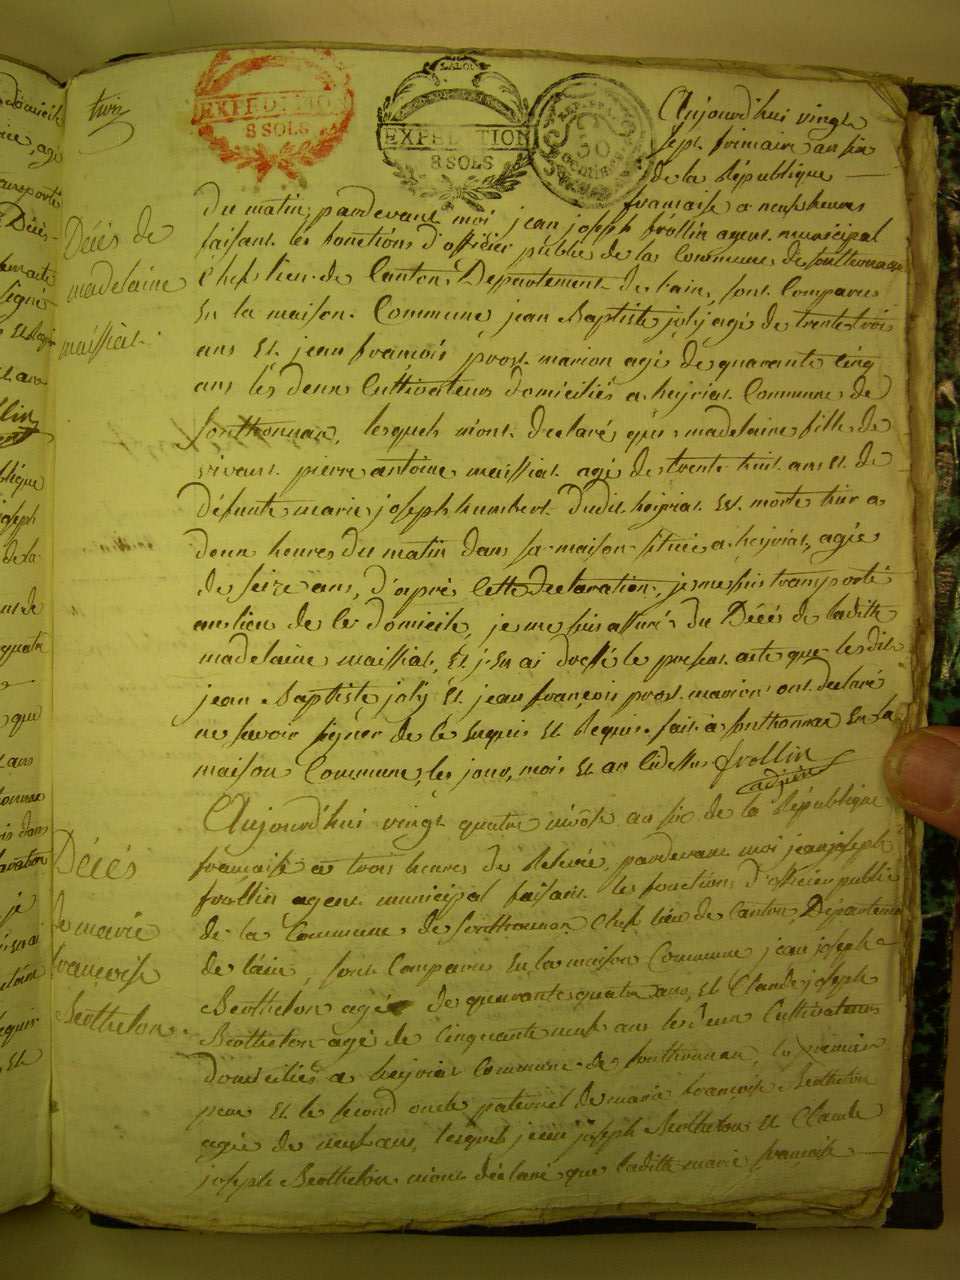 trois
EXPEDITION
8 SOLS
EXPEDITION
8 SOLS
REP. FRA.
50
centimes
Aujourd'hui vingt
sept frimaire an six
de la République
francaise a neuf heures
Décés de
madelaine
maissiat.
du matin, pardevant moi jean joseph frollin agent municipal
faisant les fonctions d'officier public de la Commune de sonthonnax
chef lieu de Canton, Departement de l'ain, sont Comparus
En la maison Commune, jean Baptiste joly agé de trente trois
ans Et jean francois prost marion agé de quarante Cinq
ans les deux Cultivateurs domiciliés a heyriat Commune de
Sonthonnax, lesquels m'ont declaré que madelaine fille de
vivant pierre antoine maissiat agé de trente huit ans Et de
défunte marie joseph humbert dudit heyriat Est morte hier a
deux heures du matin dans sa maison située a heyriat, agée
de seize ans, d'après Cette declaration, je me suis transporté
au lieu de Ce domicile, je me suis assuré du Décés de ladite
madelaine maissiat, Et j'En ai dressé le présent acte que lesdits
jean Baptiste joly Et jean françois prost marion ont declaré
ne savoir signer de Ce Enquis Et Requis. fait à sonthonnax En la
maison Commune, les jour, mois Et an Cidessus frollin
Décés
de marie
francoise
Berthelon.
Aujourd'hui vingt quatre nivôse an six de la République
française a trois heures de Relevée, pardevant moi jean joseph
frollin agent municipal faisant les fonctions d'officier public
de la Commune de Sonthonnax Chef lieu de Canton, Departement
de l'ain, sont Comparus En la maison Commune jean joseph
Berthelon agé de quarante quatre ans, Et Claude joseph
Berthelon agé de Cinquante neuf ans les deux Cultivateurs
domiciliés a heyriat Commune de sonthonnax, le premier
pere Et le second oncle paternel de marie francoise Berthelon
agée de neuf ans, lesquels jean joseph Berthelon Et Claude
joseph Berthelon m'ont déclaré que ladite marie francoise